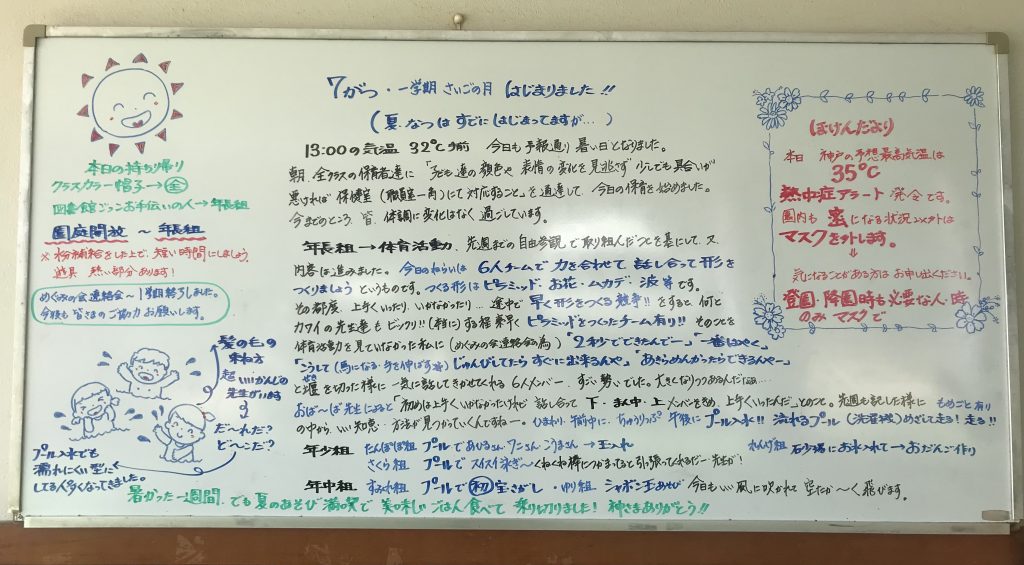 7がつ・一学期 さいごの月 はじまりました!!
(夏.なつは すでに はじまってますが…)
本日の持ち帰り
クラスカラー帽子→㊎
図書館ごっこお手伝いの人→年長組
園庭開放 ~ 年長組
※水分補給をした上で、短い時間にしましょう
遊具 熱い部分あります!
めぐみの会連絡会~1学期終了しました。
今後も皆さまのご協力お願いします。
髪の毛の
束ね方
超いいかんじの
先生がいます
だ~れだ?
ど~こだ?
プール入水でも
濡れにくい型に
してる人多くなってきました。
13:00の気温 32℃前 今日も予報通り 暑い日となりました。
朝、全クラスの保育者達に「子ども達の顔色や 表情の変化を見逃さず 少しでも具合いが
悪ければ 保健室(職員室一角)にて対応すること」を通達して 今日の保育を始めました。
今までのところ 皆 体調に変化はなく 過ごしています。
年長組→体育活動 先週までの自由参観で取り組んだことを基にして、又
内容は進みました。今日のねらいは 6人チームで 力を合わせて 話し合って 形を
つくりましょう というものです。つくる形は ピラミッド・お花・ムカデ・波 等です。
その都度 上手くいったり、いかなかったり… 途中で 早く形をつくる競争!! をすると、何と
カワイの先生達も ビックリ!!(本当に)する程 素早く ピラミッドをつくったチーム有り!! そのことを
体育活動を見ていなかった私に(めぐみの会連絡会の為)「2秒でできたんでー」「一番はやく」
「こうして(馬になる・手を伸ばす等)じゅんびしてたら すぐに出来るんや」「あきらめんかったらできるんやー」
と堰を切った様に 一気に話してきかせてくれる 6人メンバー すごい勢いでした。大きくなりつつあるんだなぁ…
おばーば先生によると「初めは上手くいかなかったけれど 話し合って 下・まん中・上 メンバーをきめ、上手くいったんだ」とのこと。先週も記した様に もめごと有り
の中から、いい知恵・方法が見つかっていくんですねー。(ひまわり 午前中に、ちゅうりっぷ 午後に プール入水!! 流れるプール(洗濯機)めざして走る!走る!!
年少組 たんぽぽ組 プールで あひるさん ワニさん こうまさん → 玉入れ れんげ組 石少場にお水入れて→おだんご作り
さくら組 プールで スイスイ泳ぎ~ くねくね棒につかまってると引っ張ってくれるだー 先生が!
年中組 すみれ組 プールで ㊗宝さがし ・ゆり組 シャボン玉あそび 今日もいい風に吹かれて 空たか~く飛びます。
暑かった一週間、でも夏のあそび満喫で 美味しいごはん食べて 乗り切りました! 神さまありがとう!!
ほけんだより
本日 神戸の予想最高気温は
35℃
熱中症アラート発令です。
園内も 蜜になる状況以外は
マスクを外します。
↓
気になることがある方は お申し出ください。
登園・降園時も必要な人・時
のみ マスクで